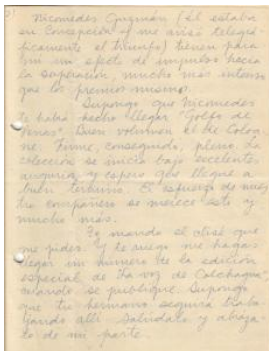 2)
Nicomedes Guzmán (Él estaba
en Concepción y me avisó telegrá-
ficamente el triunfo) tienen para
mí un efecto de impulso hacia
la superación, mucho más intenso
que los premios mismos.
Supongo que Nicomedes
te habrá hecho llegar "Golfo de
Penas". Buen volumen el de Coloa-
ne. Firme, conseguido, pleno. La
colección se inicia bajo excelentes
augurios y espero que llegue a
buen término. El esfuerzo de nues-
tro compañero se merece esto y
mucho más.
Te mando el clisé que
me pides. Y te ruego me hagas
llegar un número de la edición
especial de "La voz de Colchagua"
cuando se publique. Supongo
que tu hermano seguirá traba-
jando allí. Salúdalo y abráza-
lo de mi parte.